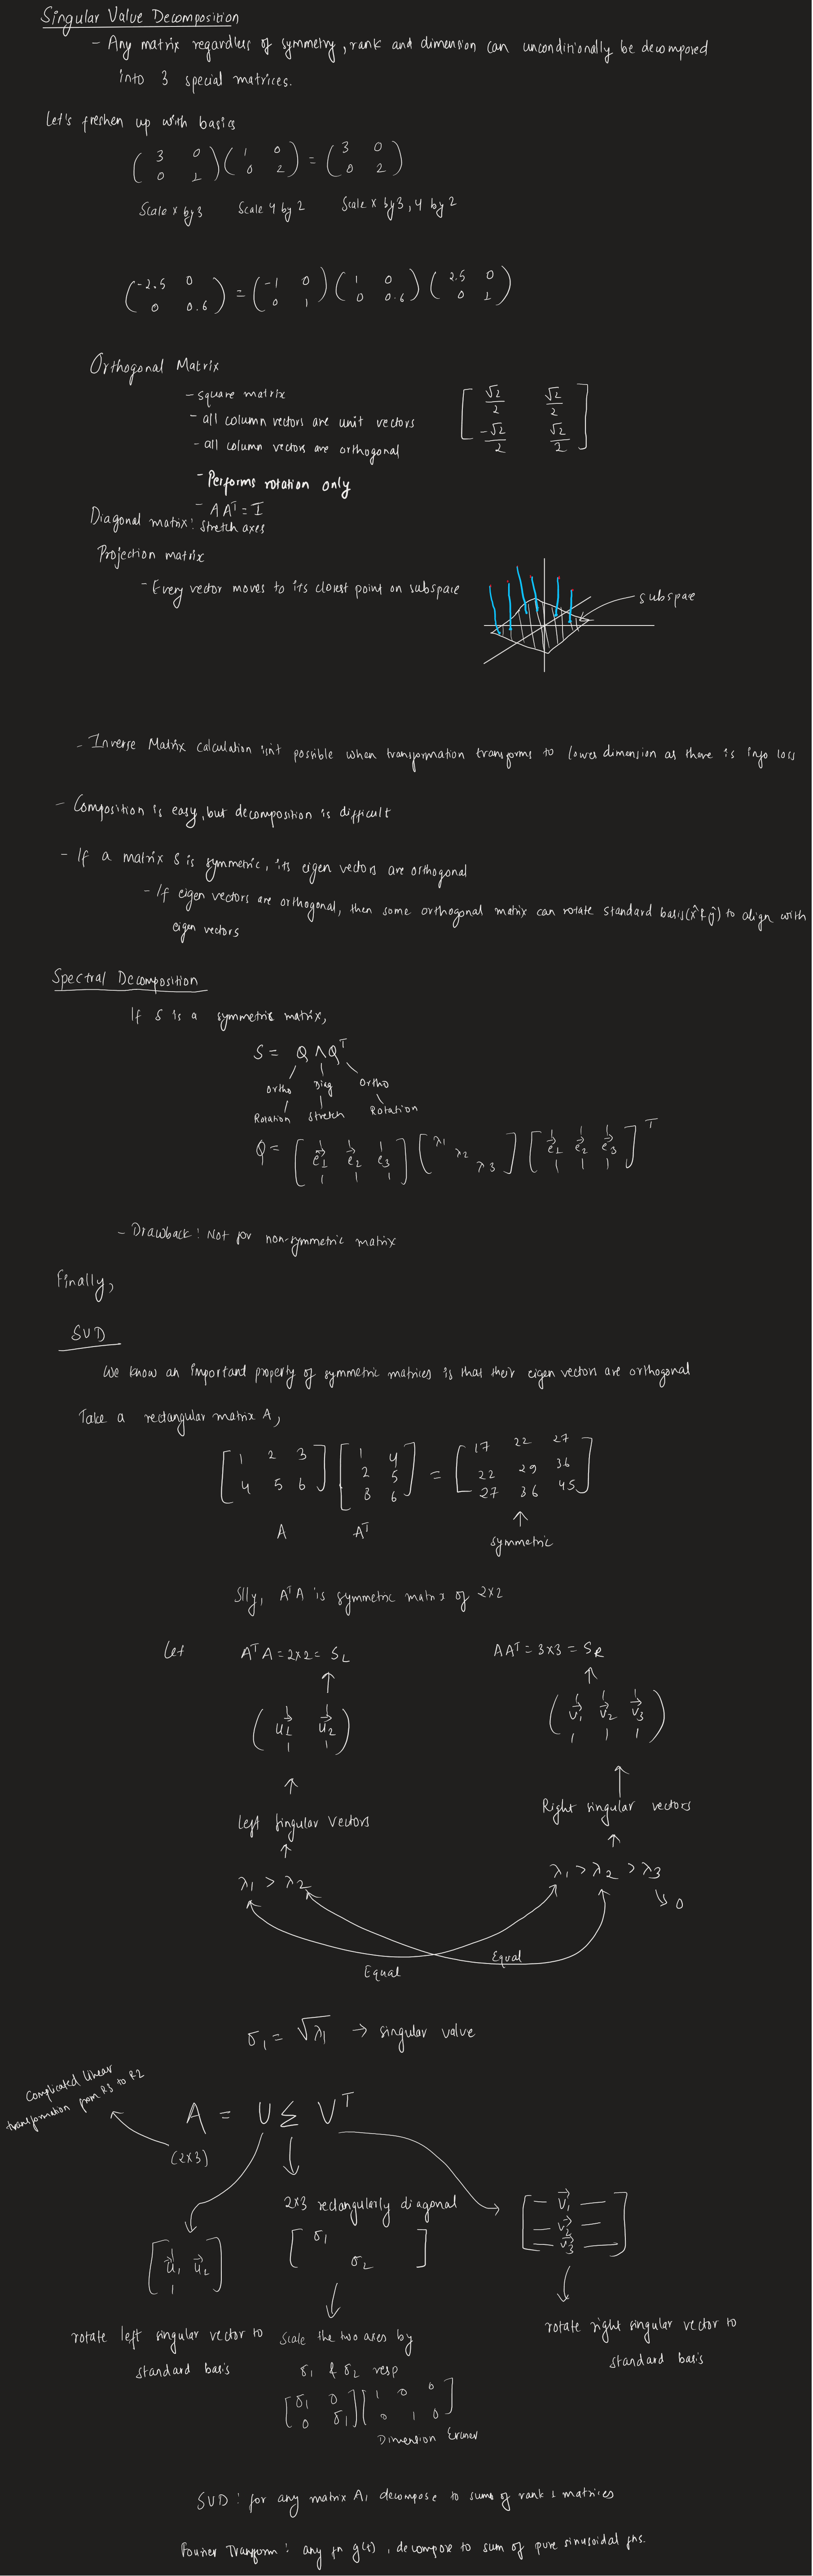 Singular Value Decomposition
- Any matrix regardless of symmetry, rank and dimension can unconditionally be decomposed
into 3 special matrices.
Let's freshen up with basics
(3 0; 0 1) (1 0; 0 2) = (3 0; 0 2)
Scale x by 3 Scale y by 2 Scale x by 3, y by 2
(-2.5 0; 0 0.6) = (-1 0; 0 1) (1 0; 0 0.6) (2.5 0; 0 1)
Orthogonal Matrix
- square matrix
- all column vectors are unit vectors
- all column vectors are orthogonal
[√2/2 √2/2; -√2/2 √2/2]
- Performs rotation only
- AAᵀ = I
Diagonal matrix: Stretch axes
Projection matrix
- Every vector moves to its closest point on subspace
subspae
- Inverse Matrix calculation isnt possible when transformation transforms to lower dimension as there is info loss
- Composition is easy, but decomposition is difficult
- If a matrix S is symmetric, its eigen vectors are orthogonal
- If eigen vectors are orthogonal, then some orthogonal matrix can rotate standard basis (x̂ & ŷ) to align with
eigen vectors
Spectral Decomposition
If S is a symmetric matrix,
S = Q Λ Qᵀ
Ortho Diag Ortho
Rotation Stretch Rotation
Q = [e₁ e₂ e₃] [λ₁ λ₂ λ₃] [e₁ e₂ e₃]ᵀ
- Drawback: Not for non-symmetric matrix
Finally,
SVD
We know an important property of symmetric matrices is that their eigen vectors are orthogonal
Take a rectangular matrix A,
[1 2 3; 4 5 6] [1 4; 2 5; 3 6] = [17 22 27; 22 29 36; 27 36 45]
A Aᵀ symmetric
Slly, AᵀA is symmetric matrix of 2x2
Let AᵀA = 2x2 = S_L AAᵀ = 3x3 = S_R
(u₁ u₂) (v₁ v₂ v₃)
Left singular vectors Right singular vectors
λ₁ > λ₂ λ₁ > λ₂ > λ₃
0
Equal
Equal
σ₁ = √λ₁ → singular value
Complicated linear
transformation from R3 to R2
A = U Σ Vᵀ
(2x3)
2x3 rectangularly diagonal
[u₁ u₂] [σ₁ σ₂] [v₁ v₂ v₃]
rotate left singular vector to
standard basis
Scale the two axes by
σ₁ & σ₂ resp
rotate right singular vector to
standard basis
[σ₁ 0; 0 σ₁] [1 0 0; 0 1 0]
Dimension Eraser
SVD: for any matrix A, decompose to sums of rank 1 matrices
Fourier Transform: any fn g(t), decompose to sum of pure sinusoidal fns.